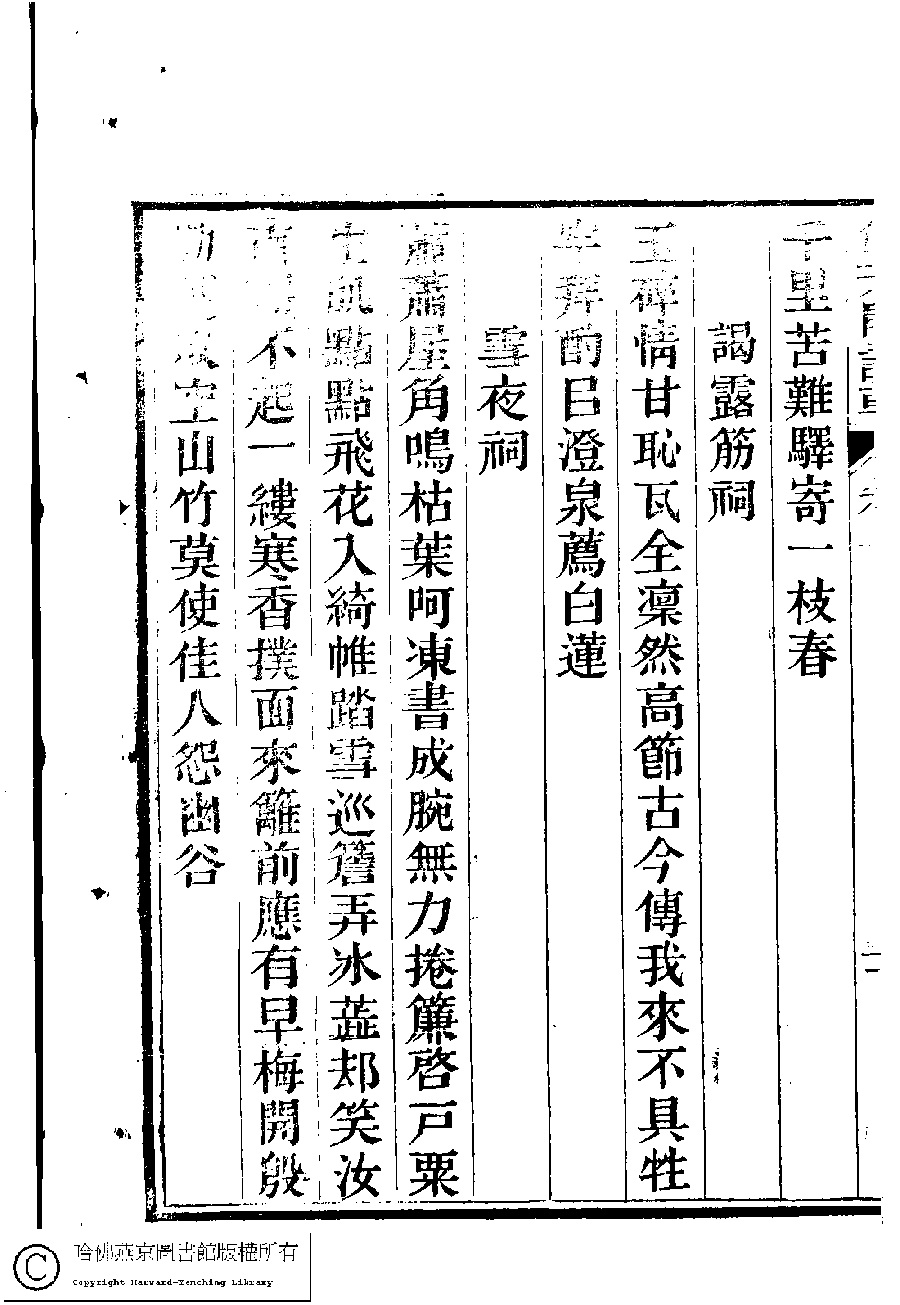 千里苦難驛寄一枝春
謁露筋祠
玉碎情甘恥瓦全凜然高節古今傳我來不具牲
牢酌㠯澄泉薦白蓮
雪夜祠
蕭蕭屋角鳴枯葉呵凍書成腕無力捲簾啓戸粟
生肌點點飛花入綺帷踏雪巡簷弄冰蕋却笑汝
南不起一縷寒香撲面來籬前應有早梅開殷
勤風空山竹莫使佳人怨幽谷
哈佛燕京圖書館版權所有
Copyright Harvard-Yenching Library